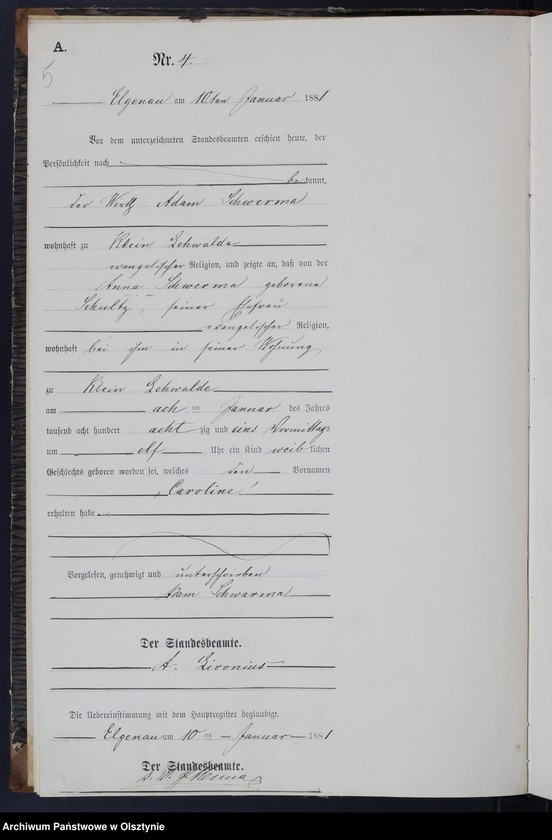 A.
Nr. 4.
5
Elgenau am 10ten Januar 1881
Vor dem unterzeichneten Standesbeamten erschien heute, der
Persönlichkeit nach
bekannt,
der Wirth Adam Schwerma
wohnhaft zu Klein Lehwalde
evangelischer Religion, und zeigte an, daß von der
Anna Schwerma geborene
Schultz, seiner Ehefrau
evangelischer Religion,
wohnhaft bei ihm in seiner Wohnung
zu Klein Lehwalde
am acht ten Januar des Jahres
tausend acht hundert acht zig und eins Vormittags
um elf Uhr ein Kind weiblichen
Geschlechts geboren worden sei, welches den Vornamen
„Caroline“
erhalten habe.
Vorgelesen, genehmigt und unterschrieben
Adam Schwarma
Der Standesbeamte.
A. Livonius
Die Uebereinstimmung mit dem Hauptregister beglaubigt.
Elgenau am 10ten Januar 1881
Der Standesbeamte.
Archiwum Państwowe w Olsztynie